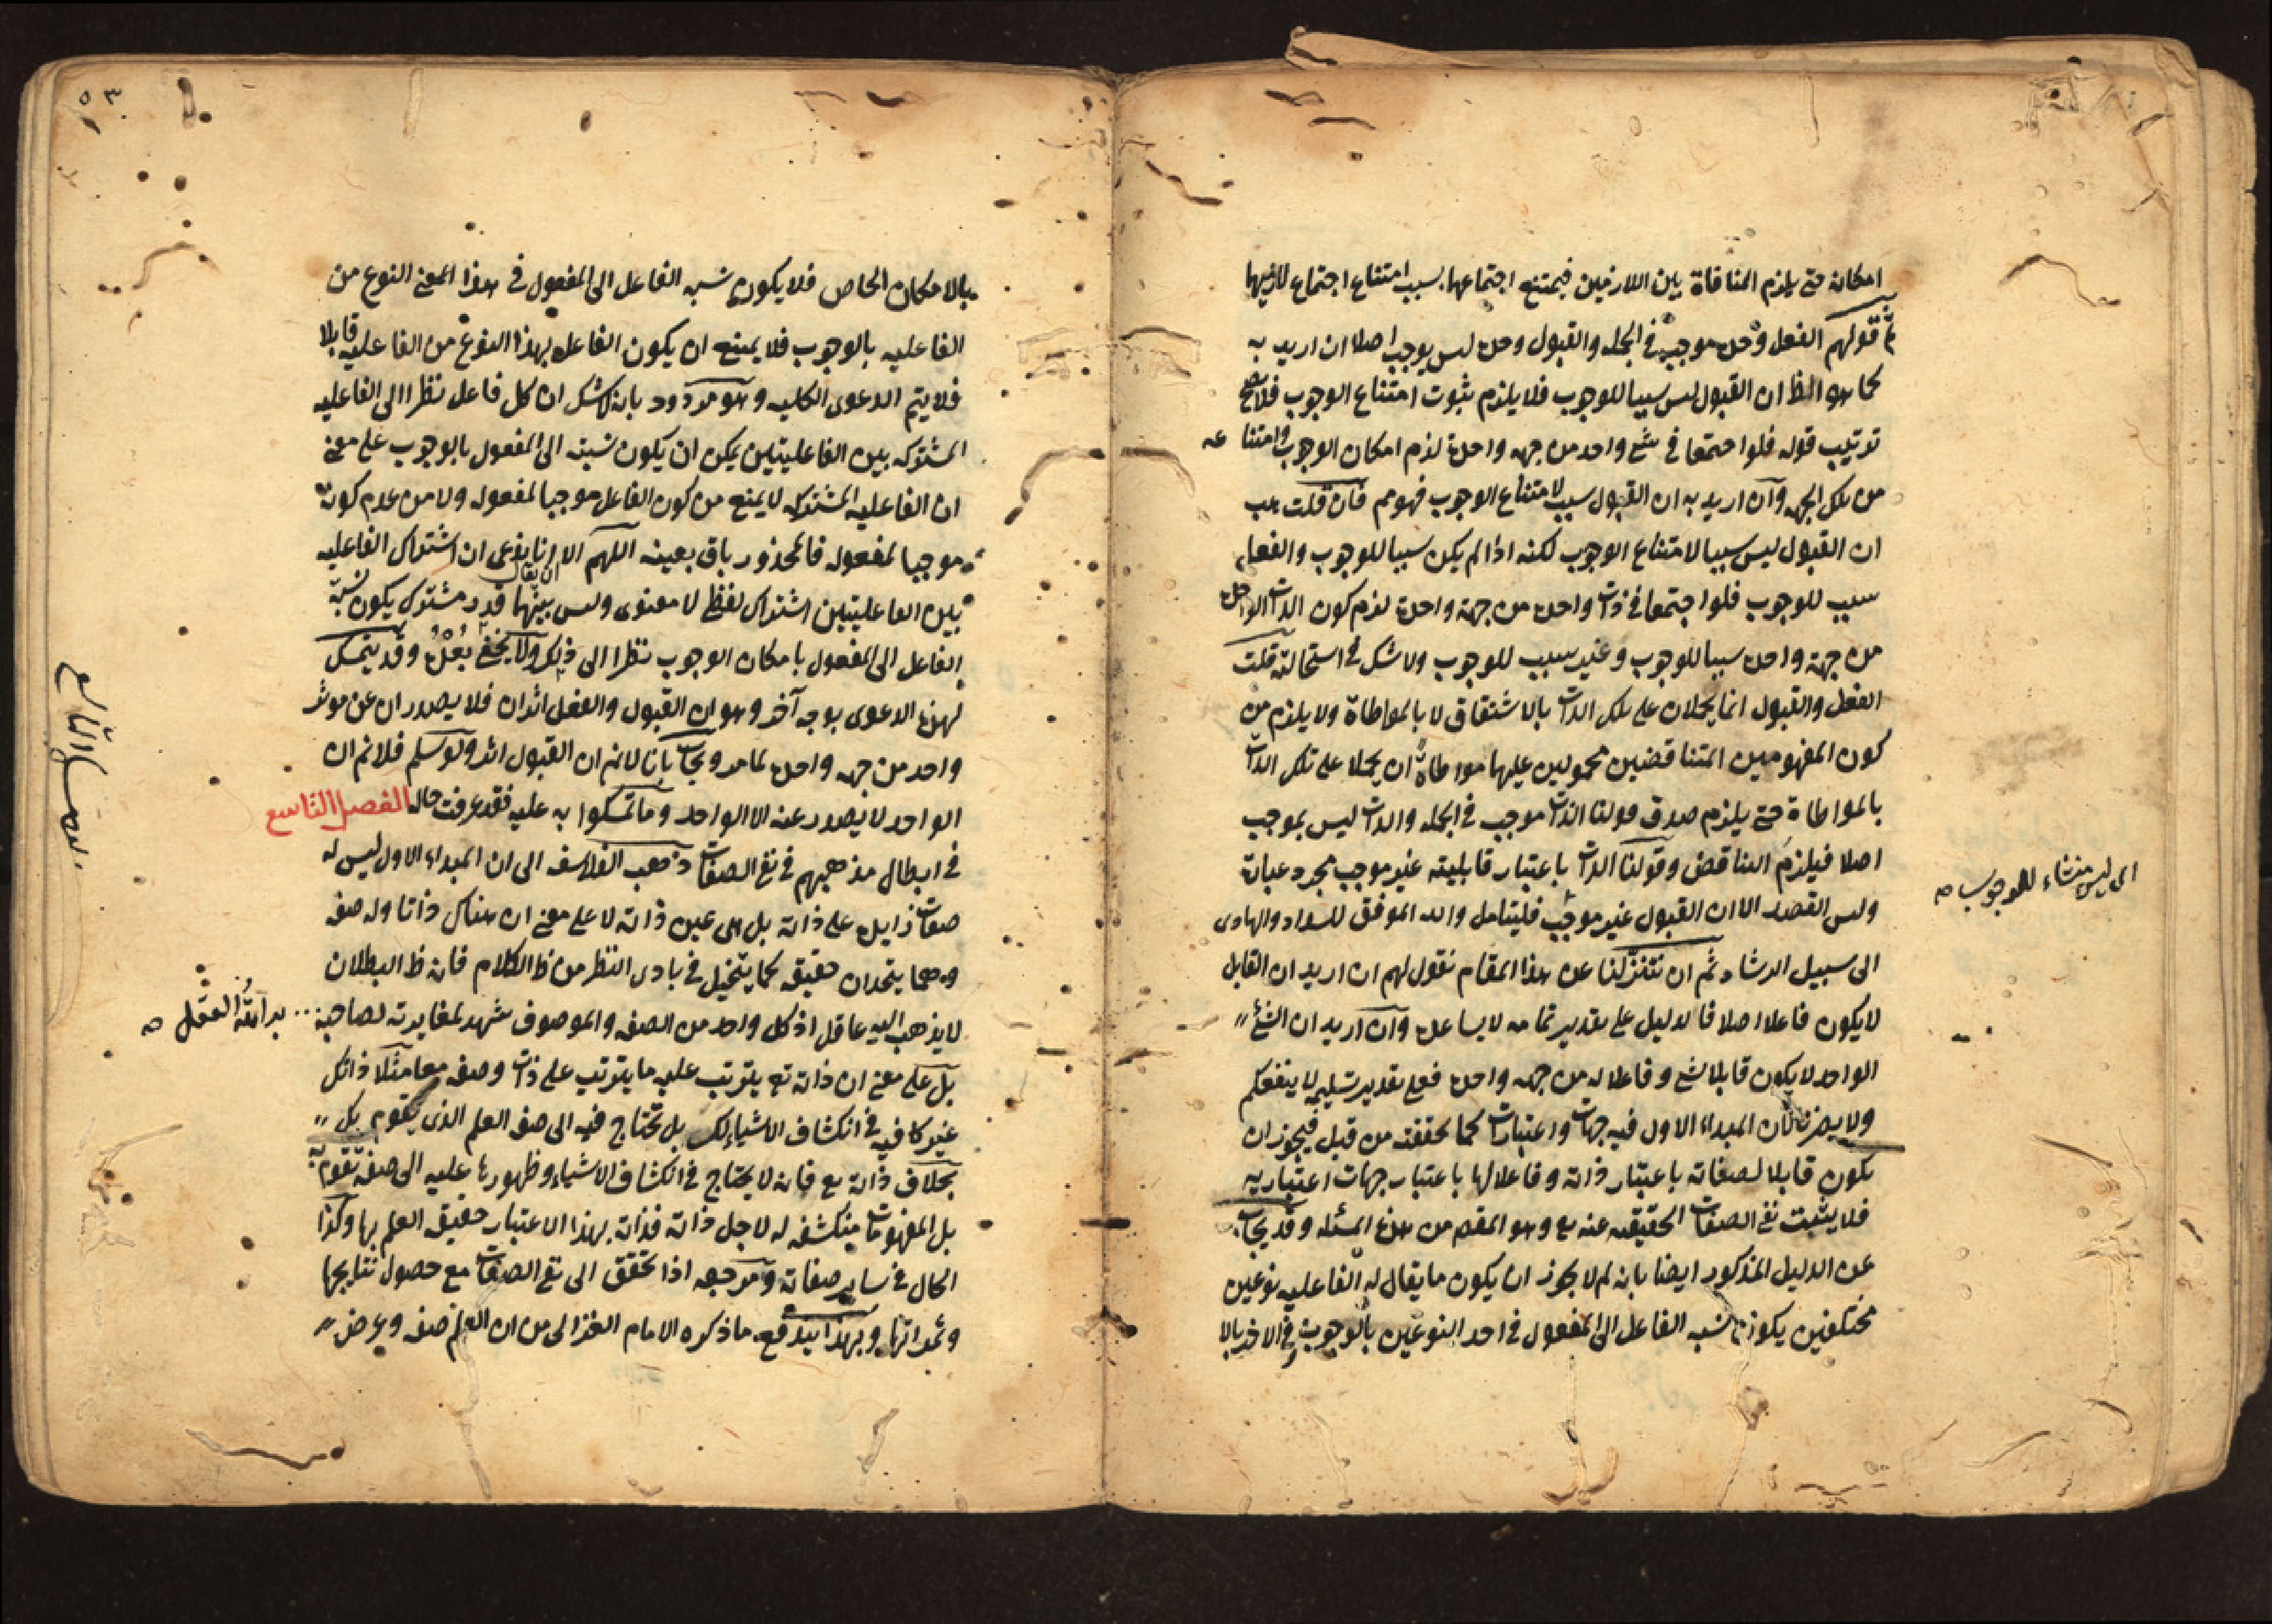 امكانه حتى يلزم المنافاة بين اللازمين فيمتنع اجتماعهما بسبب امتناع اجتماع لازميهما
ثم قولهم الفعل وحده موجب في الجملة والقبول وحده ليس بموجب اصلا ان اريد به
كما هو الظ ان القبول ليس سببا للوجوب فلا يلزم ثبوت امتناع الوجوب فلا يصح
ترتيب قوله فلو اجتمعا في شئ واحد من جهه واحدة لزم امكان الوجوب وامتناعه
من تلك الجهه وان اريد به ان القبول سبب لامتناع الوجوب فهو مم فان قلت هب
ان القبول ليس سببا لامتناع الوجوب لكنه اذا لم يكن سببا للوجوب والفعل
سبب للوجوب فلو اجتمعا في ذات واحدة من جهة واحدة لزم كون الذات الواحدة
من جهة واحدة سببا للوجوب وغير سبب للوجوب ولا شك في استحالته قلت
الفعل والقبول انما يحملان على تلك الذات بالاشتقاق لا بالمواطاة ولا يلزم من
كون المفهومين المتناقضين محمولين عليهما مواطاة ان يحملا على تلك الذات
بالمواطاة حتى يلزم صدق قولنا الذات موجب في الجمله والذات ليس بموجب
اصلا فيلزم التناقض وقولنا الذات باعتبار قابليته غير موجب مجرد عبارة
وليس القصد الا ان القبول غير موجب فليتامل والله الموفق للسداد والهادى
اى ليس منشاء للوجوب
الى سبيل الرشاد ثم ان تنزلنا عن هذا المقام نقول لهم ان اريد ان القابل
لا يكون فاعلا اصلا فالدليل على تقدير تمامه لا يساعده وان اريد ان الشئ
الواحد لا يكون قابلا لشئ وفاعلا له من جهه واحدة فعلى تقدير تسليمه لا ينفعكم
ولا يضرنا لان المبداء الاول فيه جهات واعتبارات كما تحققته من قبل فيجوز ان
يكون قابلا لصفاته باعتبار ذاته وفاعلا لها باعتبار جهات اعتباريه
فلا يثبت نفى الصفات الحقيقيه عنه تع وهو المقصد من هذه المسئله وقد يجاب
عن الدليل المذكور ايضا بانه لم لا يجوز ان يكون ما يقال له الفاعليه نوعين
مختلفين يكون نسبه الفاعل الى المفعول في احد النوعين بالوجوب وفي الاخر بالا
٥٣
بالامكان الخاص فلا يكون نسبه الفاعل الى المفعول في هذا المعنى النوع من
الفاعليه بالوجوب فلا يمتنع ان يكون الفاعل بهذا النوع من الفاعليه قابلا
فلا يتم الدعوى الكليه وهو مردود بانه لا شك ان كل فاعل نظرا الى الفاعليه
المشتركه بين الفاعليتين يمكن ان يكون نسبته الى المفعول بالوجوب على معنى
ان الفاعليه المشتركه لا يمنع من كون الفاعل موجبا لمفعوله ولا من عدم كونه
موجبا لمفعوله فالمحذور باق بعينه اللهم الا ان يقال ان اشتراك الفاعليه
بين الفاعليتين اشتراك لفظى لا معنوى وليس بينهما قدر مشترك يكون نسبة
الفاعل الى المفعول بامكان الوجوب نظرا الى ذلك ولا يخفى بُعده وقد يتمسك
لهذه الدعوى بوجه آخر وهو ان القبول والفعل اثران فلا يصدران عن موثر
واحد من جهه واحدة لما مر ويجاب بانا لا نم ان القبول اثر ولو سلم فلا نم ان
الواحد لا يصدر عنه الا الواحد وما تمسكوا به عليه فقد عرفت حاله الفصل التاسع
الفصل التاسع
في ابطال مذهبهم في نفى الصفات ذهب الفلاسفه الى ان المبداء الاول ليس له
صفات زايدة على ذاته بل هى عين ذاته لا على معنى ان هناك ذاتا وله صفه
وهما يتحدان حقيقه كما يتخيل في بادى النظر من ظ الكلام فانه ظ البطلان
لا يذهب اليه عاقل اذ كل واحد من الصفه والموصوف شهد لمغايرته لصاحبه
بداهة العقل
بل على معنى ان ذاته تع يترتب عليه ما يترتب على ذات وصفه معا مثلا ذاتك
غير كافيه في انكشاف الاشياء لك بل تحتاج فيه الى صفه العلم الذى يقوم بك
بخلاف ذاته تع فانه لا يحتاج في انكشاف الاشياء وظهورها عليه الى صفه تقوم به
بل المفهومات منكشفه له لاجل ذاته فذاته بهذا الاعتبار حقيقه العلم بها وكذا
الحال في ساير صفاته ومرجعه اذا تحقق الى نفى الصفات مع حصول نتايجها
وثمراتها وبهذا يندفع ما ذكره الامام الغزالى من ان العلم صفه وعرض